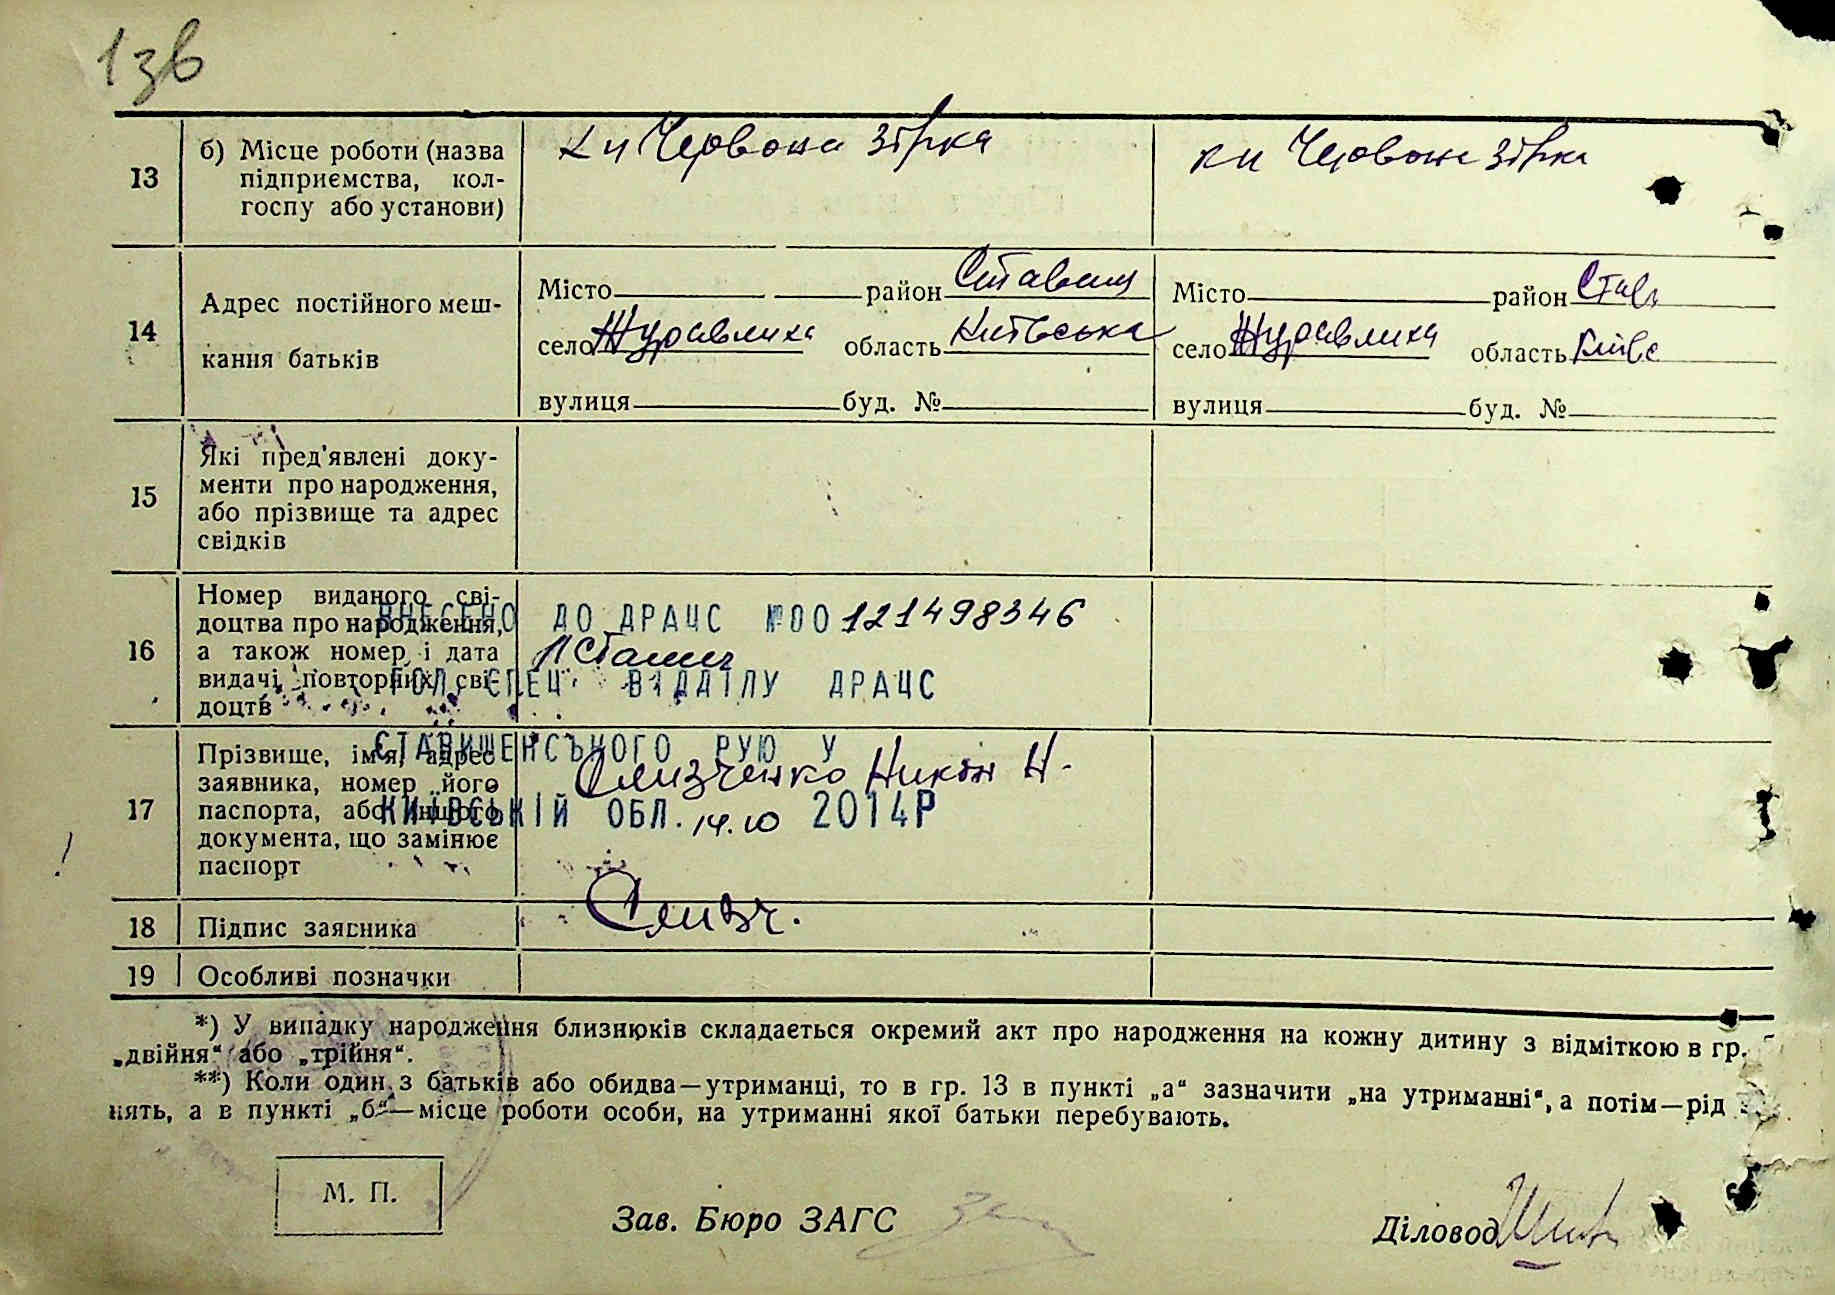 13зв
13
б) Місце роботи (назва
підприємства, кол-
госпу або установи)
Червона зірка
Червона зірка
14
Адрес постійного меш-
кання батьків
Місто район Ставищ
село Журавлиха область Київська
вулиця буд. №
Місто район Став
село Журавлиха область Київс
вулиця буд. №
15
Які пред'явлені доку-
менти про народження,
або прізвище та адрес
свідків
16
Номер виданого сві-
доцтва про народження,
а також номер і дата
видачі повторних сві-
доцтв
ВНЕСЕНО ДО ДРАЦС №00121498346
ГОЛ. СПЕЦ. ВІДДІЛУ ДРАЦС
СТАВИЩЕНСЬКОГО РУЮ У
КИЇВСЬКІЙ ОБЛ. 14.10 2014Р
17
Прізвище, ім'я, адрес
заявника, номер його
паспорта, або іншого
документа, що замінює
паспорт
Слизченко Никон Н.
18
Підпис заявника
Слизч.
19
Особливі позначки
*) У випадку народження близнюків складається окремий акт про народження на кожну дитину з відміткою в гр.
„двійня" або „трійня".
**) Коли один з батьків або обидва—утриманці, то в гр. 13 в пункті „а" зазначити „на утриманні", а потім—рід
нять, а в пункті „б"—місце роботи особи, на утриманні якої батьки перебувають.
М. П.
Зав. Бюро ЗАГС
Діловод